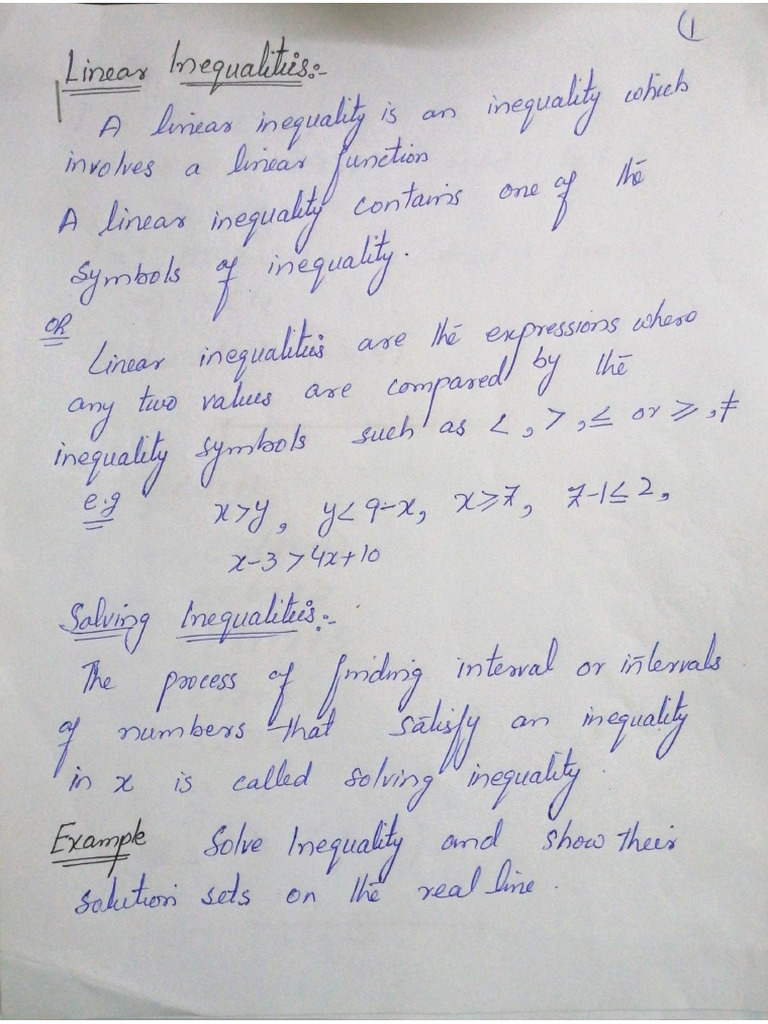 (1
Linear Inequalities:-
A linear inequality is an inequality which
involves a linear function
A linear inequality contains one of the
symbols of inequality.
OR
Linear inequalities are the expressions where
any two values are compared by the
inequality symbols such as <, >, ≤ or ≥, ≠
e.g x>y, y<9-x, x≥7, 7-1≤2,
x-3>4x+10
Solving Inequalities:-
The process of finding interval or intervals
of numbers that satisfy an inequality
in x is called solving inequality.
Example Solve Inequality and show their
solution sets on the real line.